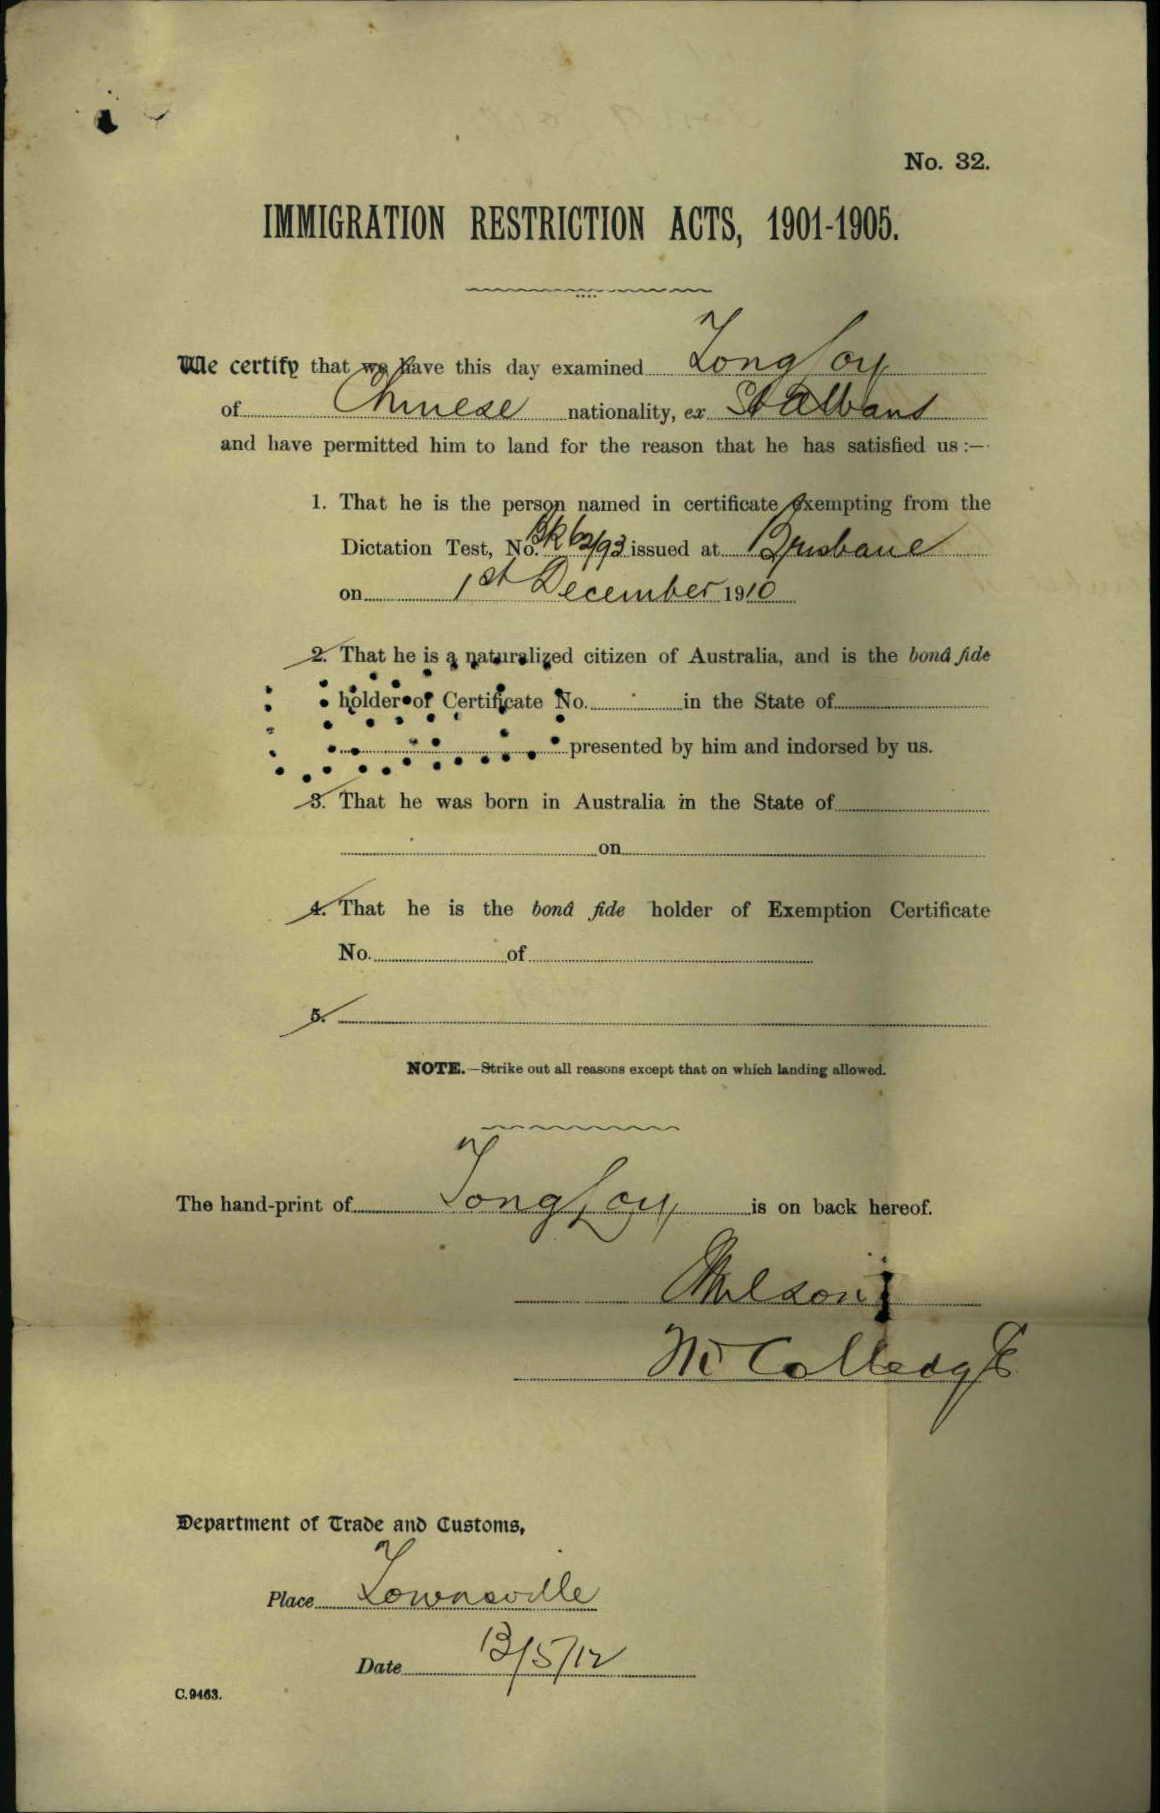 No. 32.
IMMIGRATION RESTRICTION ACTS, 1901-1905.
We certify that we have this day examined Tong Loy
of Chinese nationality, ex St Albans
and have permitted him to land for the reason that he has satisfied us :—
1. That he is the person named in certificate exempting from the
Dictation Test, No. Bk 62/93 issued at Brisbane
on 1st December 1910
2. That he is a naturalized citizen of Australia, and is the bonâ fide
holder of Certificate No. in the State of
presented by him and indorsed by us.
3. That he was born in Australia in the State of
on
4. That he is the bonâ fide holder of Exemption Certificate
No. of
5.
NOTE.—Strike out all reasons except that on which landing allowed.
The hand-print of Tong Loy is on back hereof.
McColledge
Department of Trade and Customs,
Place Townsville
Date 13/5/12
C.9463.